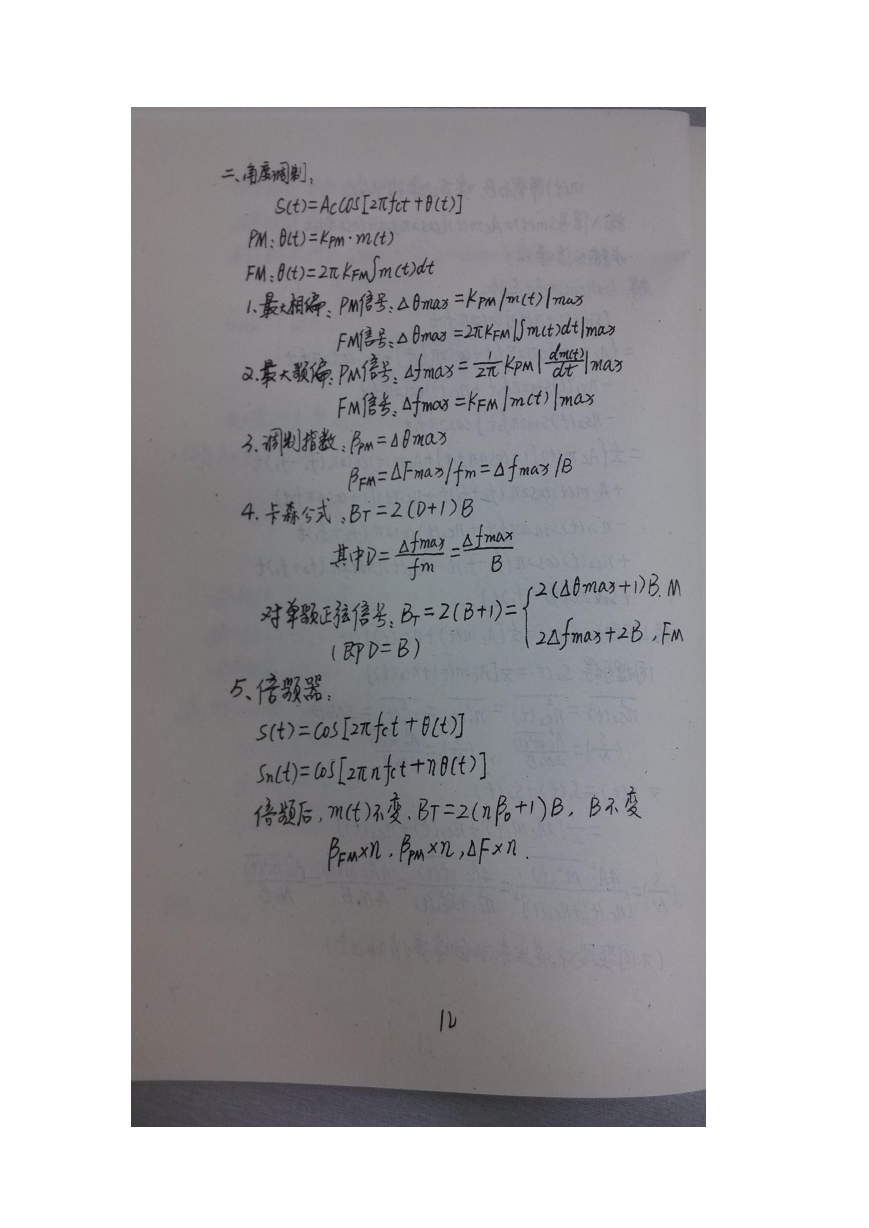 二、角度调制:
S(t)=Accos[2πfct+θ(t)]
PM:θ(t)=KPM·m(t)
FM:θ(t)=2πKFM∫m(t)dt
1.最大相偏:PM信号:Δθmax=KPM|m(t)|max
FM信号:Δθmax=2πKFM|∫m(t)dt|max
2.最大频偏:PM信号:Δfmax=1/2π KPM|dm(t)/dt|max
FM信号:Δfmax=KFM|m(t)|max
3.调制指数:βPM=Δθmax
βFM=ΔFmax/fm=Δfmax/B
4.卡森公式:BT=2(D+1)B
其中D=Δfmax/fm=Δfmax/B
对单频正弦信号:BT=2(B+1)={2(Δθmax+1)B.M
(即D=B) 2Δfmax+2B,FM
5、倍频器:
S(t)=cos[2πfct+θ(t)]
Sn(t)=cos[2πnfct+nθ(t)]
倍频后,m(t)不变.BT=2(nβ0+1)B, B不变
βFM×n,βPM×n,ΔF×n.
12